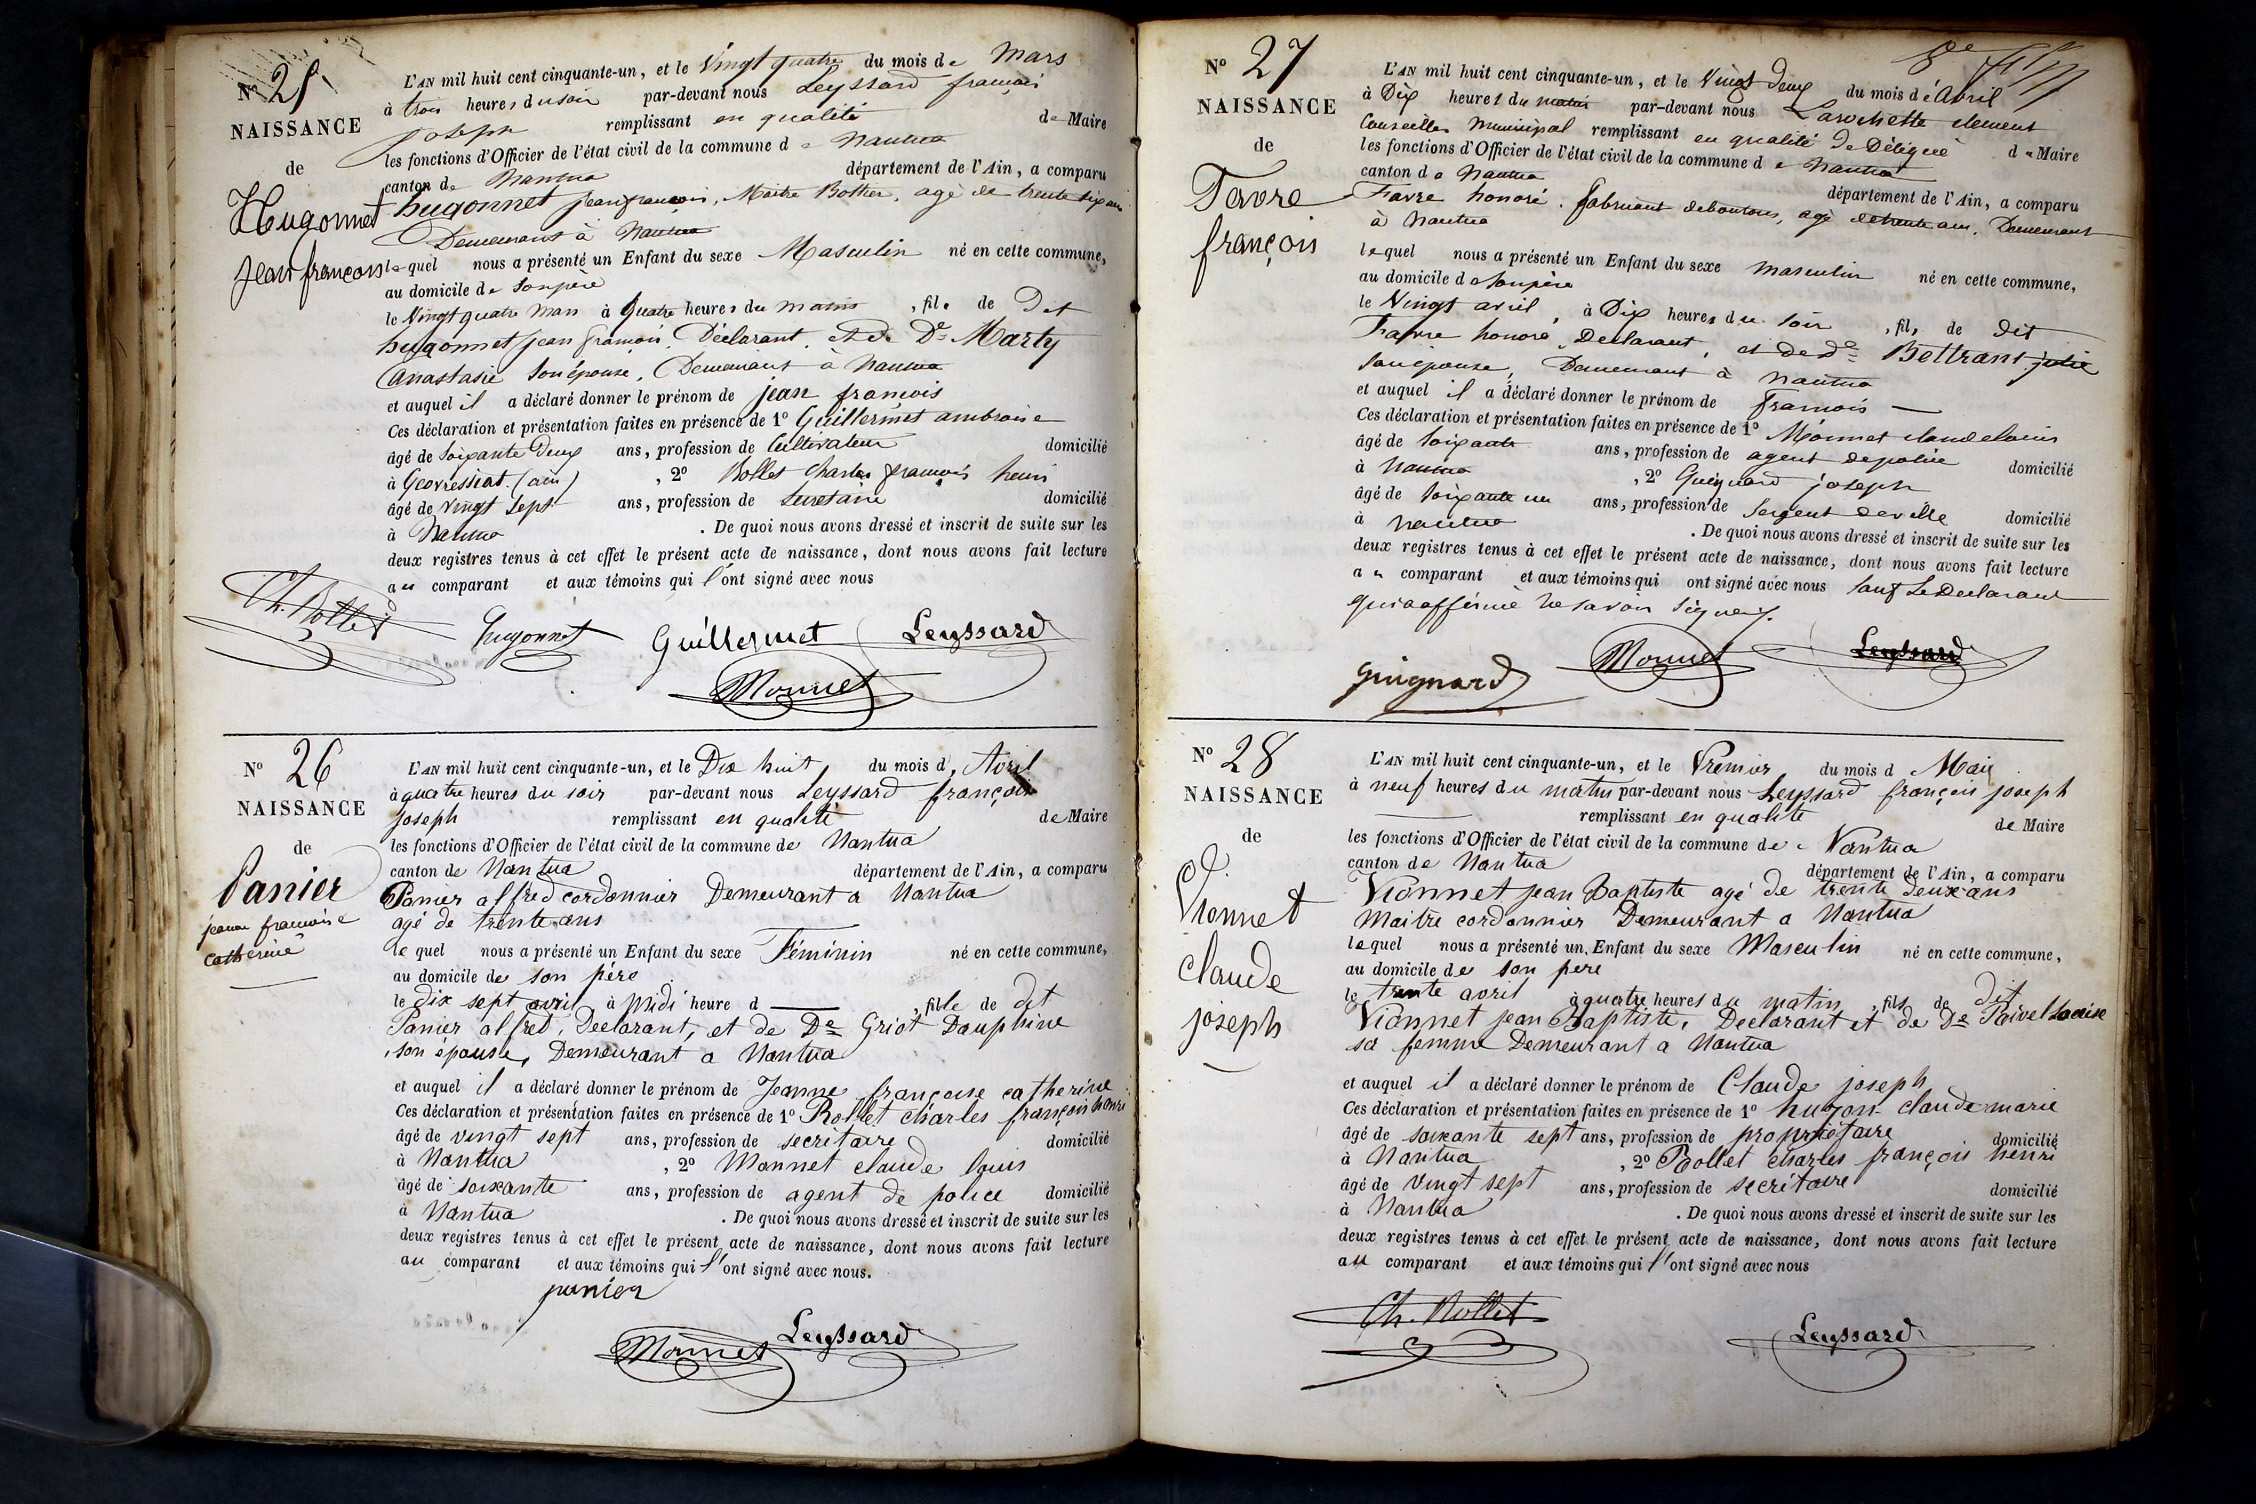 Nº 25
NAISSANCE
de
Hugonnet
Jean françois
L'AN mil huit cent cinquante-un, et le Vingt quatre du mois de Mars
à trois heures du soir par-devant nous Leyssard françois
joseph remplissant en qualité de Maire
les fonctions d'Officier de l'état civil de la commune de Nantua
canton de Nantua département de l'Ain, a comparu
hugonnet jean françois, Maitre Bottier, agé de trente six ans
Demeurant à Nantua
lequel nous a présenté un Enfant du sexe Masculin né en cette commune,
au domicile de son père
le Vingt quatre Mars à Quatre heures du matin, fils de Dit
hugonnet jean françois, Déclarant, et de De Marty
Anastasie son épouse, Demeurant à Nantua
et auquel il a déclaré donner le prénom de jean françois
Ces déclaration et présentation faites en présence de 1º Guillermet ambroise
âgé de soixante Deux ans, profession de Cultivateur domicilié
à Géovressiat (ain), 2º Rollet Charles françois henri
âgé de vingt sept ans, profession de secretaire domicilié
à Nantua. De quoi nous avons dressé et inscrit de suite sur les
deux registres tenus à cet effet le présent acte de naissance, dont nous avons fait lecture
au comparant et aux témoins qui l'ont signé avec nous
Ch. Rollet Hugonnet Guillermet Leyssard
Monnet
Nº 26
NAISSANCE
de
Panier
jeanne francoise
catherine
L'AN mil huit cent cinquante-un, et le Dix huit du mois d'Avril
à quatre heures du soir par-devant nous Leyssard françois
joseph remplissant en qualité de Maire
les fonctions d'Officier de l'état civil de la commune de Nantua
canton de Nantua département de l'Ain, a comparu
Panier alfred cordonnier Demeurant a Nantua
agé de trente ans
lequel nous a présenté un Enfant du sexe Féminin né en cette commune,
au domicile de son père
le dix sept avril à Midi heure d , fille de dit
Panier alfred, Declarant, et de De Griot Dauphine
son épouse, Demeurant a Nantua
et auquel il a déclaré donner le prénom de Jeanne françoise catherine
Ces déclaration et présentation faites en présence de 1º Rollet charles françois henri
âgé de vingt sept ans, profession de secrétaire domicilié
à Nantua, 2º Monnet claude louis
âgé de soixante ans, profession de agent de police domicilié
à Nantua. De quoi nous avons dressé et inscrit de suite sur les
deux registres tenus à cet effet le présent acte de naissance, dont nous avons fait lecture
au comparant et aux témoins qui l'ont signé avec nous.
panier
Leyssard
Monnet
Nº 27
NAISSANCE
de
Favre
françois
L'AN mil huit cent cinquante-un, et le Vingt deux du mois d'Avril
à Dix heures du matin par-devant nous Larochette clement
Conseiller Municipal remplissant en qualité de Délégué de Maire
les fonctions d'Officier de l'état civil de la commune de Nantua
canton de Nantua département de l'Ain, a comparu
Favre honoré, fabricant de boutons, agé de trente ans, Demeurant
à Nantua
lequel nous a présenté un Enfant du sexe masculin né en cette commune,
au domicile de son père
le Vingt avril, à Dix heures du soir, fils de dit
Favre honoré, Declarant, et de de Bettrant julie
son épouse, Demeurant à Nantua
et auquel il a déclaré donner le prénom de françois
Ces déclaration et présentation faites en présence de 1º Monnet claude louis
âgé de soixante ans, profession de agent de police domicilié
à Nantua, 2º Guignard joseph
âgé de soixante un ans, profession de sergent de ville domicilié
à Nantua. De quoi nous avons dressé et inscrit de suite sur les
deux registres tenus à cet effet le présent acte de naissance, dont nous avons fait lecture
au comparant et aux témoins qui ont signé avec nous sauf Le Declarant
qui a affirmé ne savoir signer.
Guignard Monnet Leyssard
Nº 28
NAISSANCE
de
Vionnet
claude
joseph
L'AN mil huit cent cinquante-un, et le Premier du mois d Mai
à neuf heures du matin par-devant nous Leyssard françois joseph
remplissant en qualité de Maire
les fonctions d'Officier de l'état civil de la commune de Nantua
canton de Nantua département de l'Ain, a comparu
Vionnet jean Baptiste agé de trente deux ans
Maitre cordonnier Demeurant a Nantua
lequel nous a présenté un Enfant du sexe Masculin né en cette commune,
au domicile de son père
le trente avril à quatre heures du matin, fils de dit
Vionnet jean Baptiste, Declarant et de De Poivel Louise
sa femme Demeurant a Nantua
et auquel il a déclaré donner le prénom de Claude joseph
Ces déclaration et présentation faites en présence de 1º hugon claude marie
âgé de soixante sept ans, profession de propriétaire domicilié
à Nantua, 2º Rollet charles françois henri
âgé de vingt sept ans, profession de secrétaire domicilié
à Nantua. De quoi nous avons dressé et inscrit de suite sur les
deux registres tenus à cet effet le présent acte de naissance, dont nous avons fait lecture
au comparant et aux témoins qui l'ont signé avec nous
Ch. Rollet Leyssard